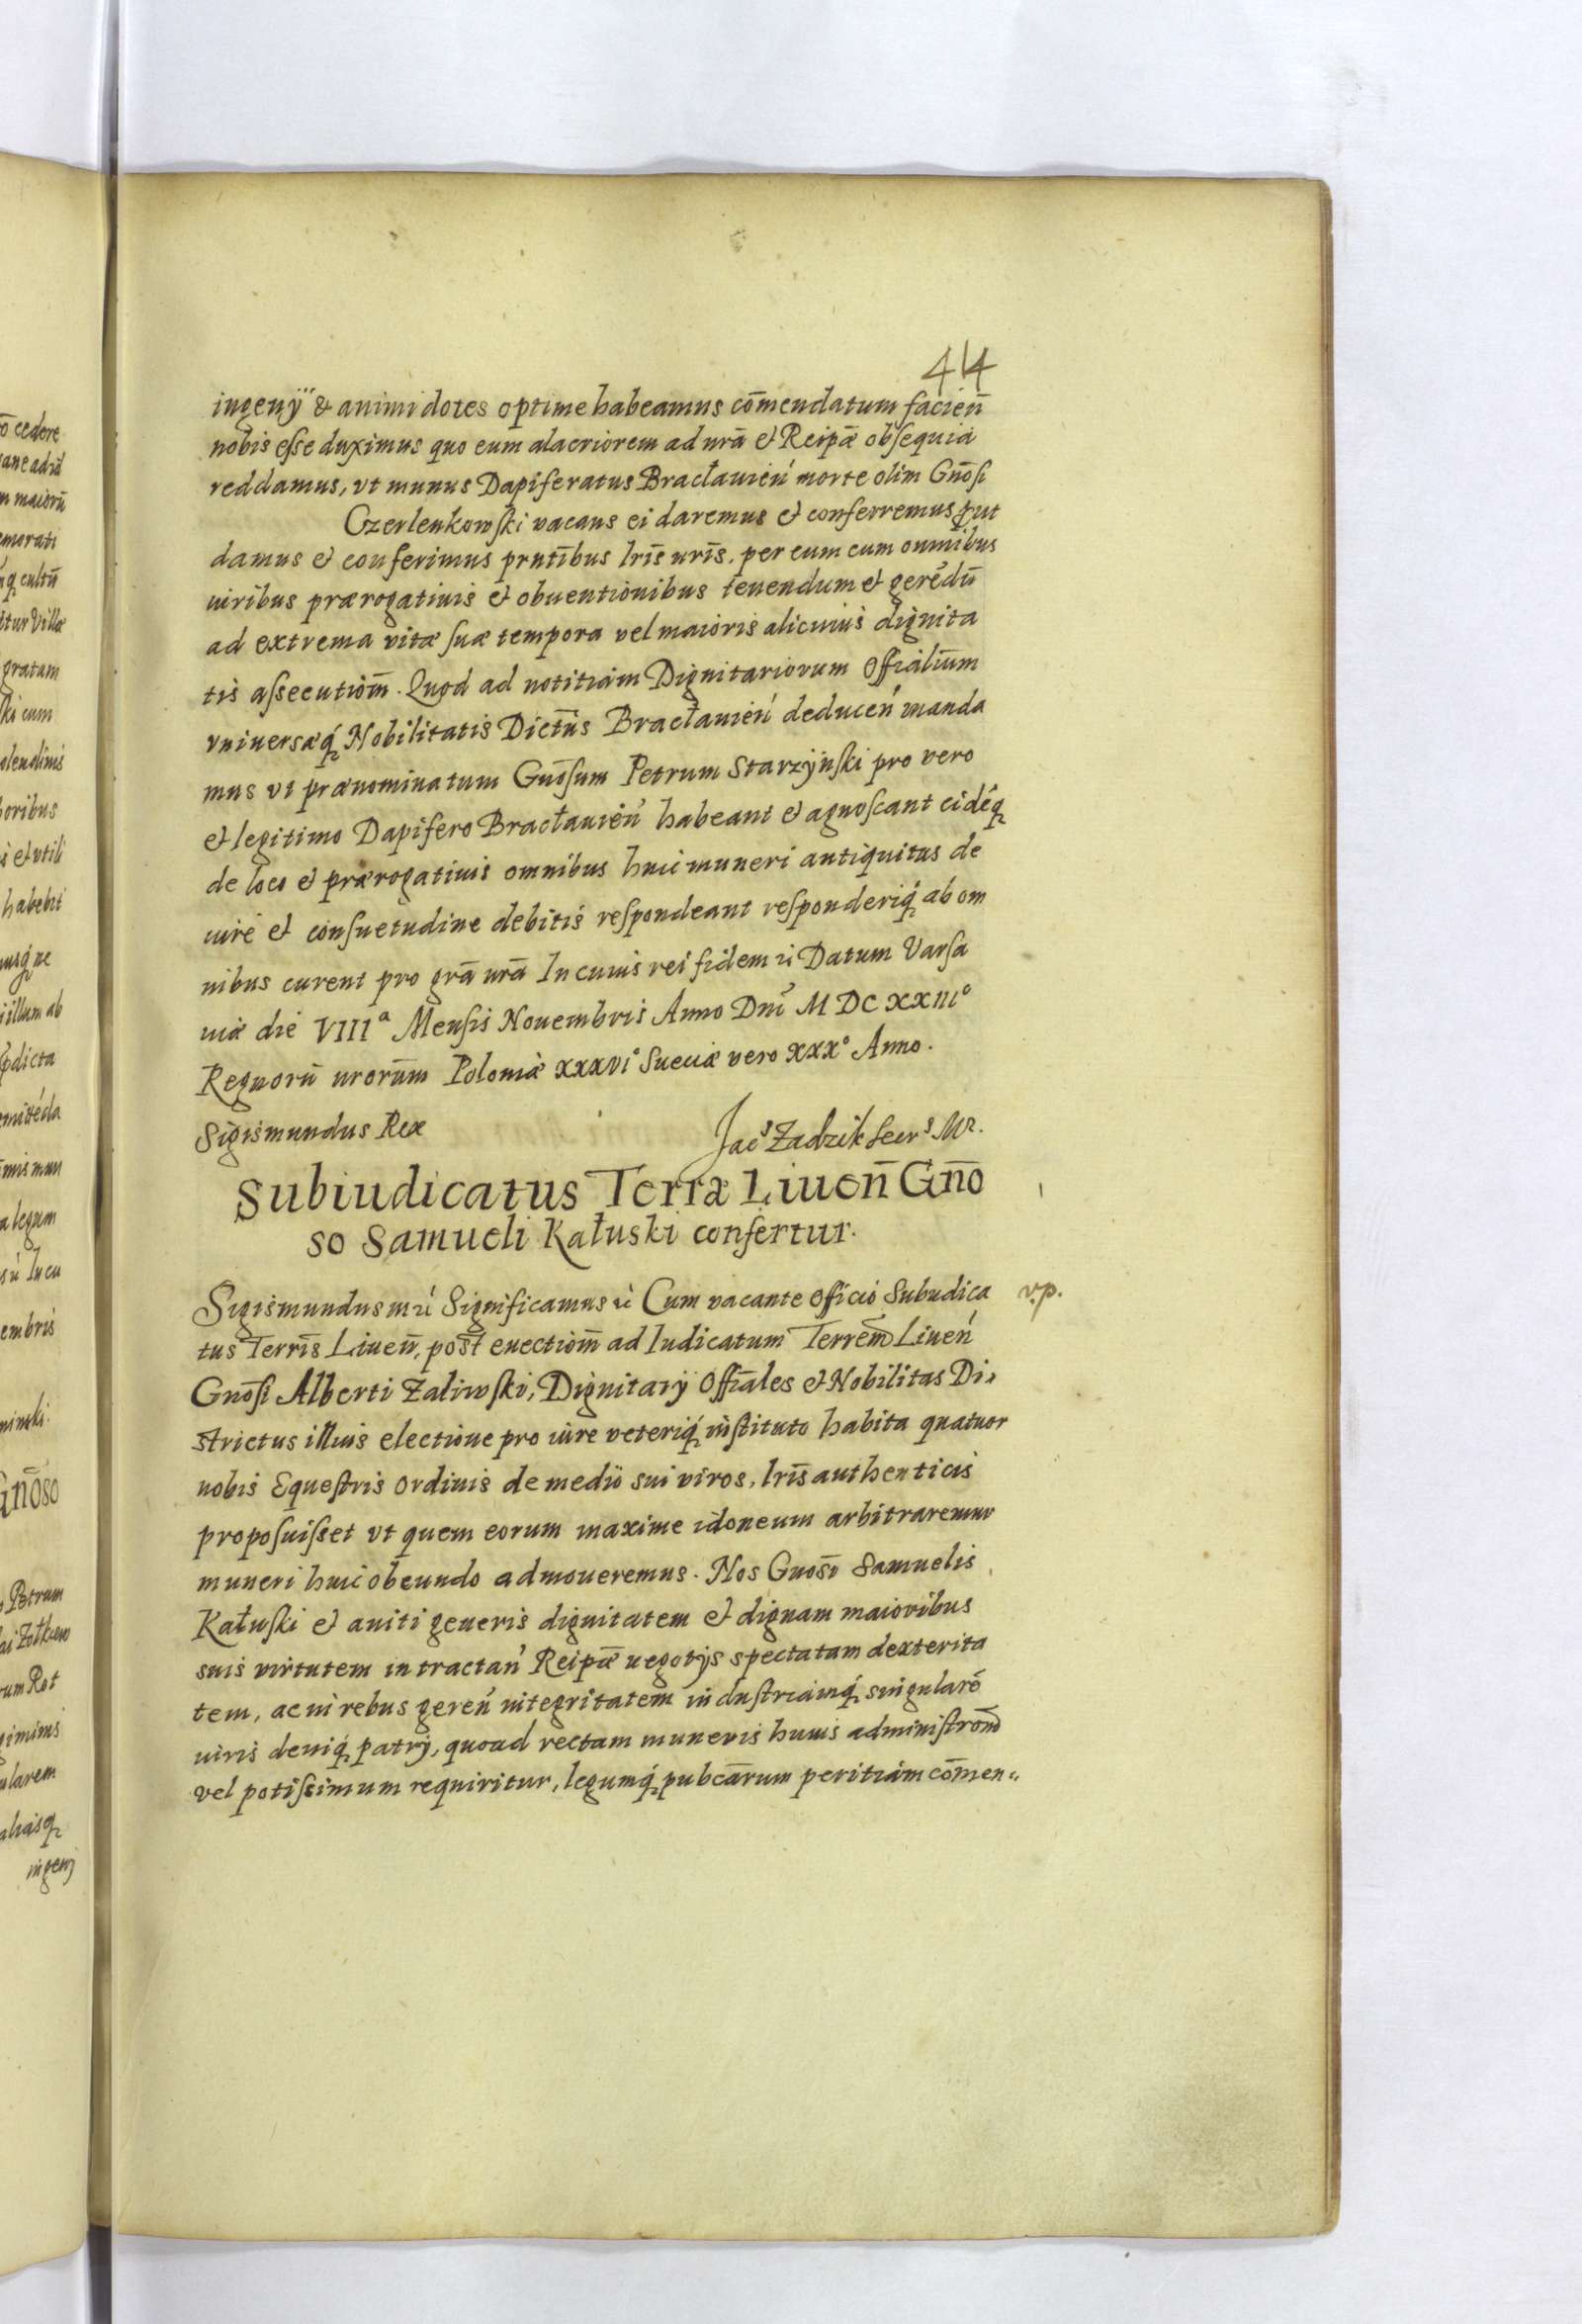 414
ingenÿ & animi dotes optime habeamus cōmendatum facien̄
nobis esse duximus quo eum alacriorem ad nrā et Reipæ obsequia
reddamus, vt munus Dapiferatus Bracłauień morte olim Gnōsi
Czerlenkowski vacans ei daremus et conferremus put
damus et conferimus prntībus lrīs nrīs, per eum cum omnibus
iuribus prærogatiuis et obuentionibus tenendum et gerēdū
ad extrema vitæ suæ tempora vel maioris alicuius dignita
tis assecutiōm. Quod ad notitiam Dignitariorum Officialīum
vniversæq́ Nobilitatis Dictūs Bracłauień deduceń manda
mus vt prænominatum Gnōsum Petrum Starzÿnski pro vero
et legitimo Dapifero Bracłauień habeant et agnoscant eidēq
de loco et prærogatiuis omnibus huic muneri antiquitus de
iure et consuetudine debitis respondeant responderiq́ ab om
nibus curent pro grā nrā In cuius rei fidem ıı Datum Varsa
uiæ die VIIIª Mensis Nouembris Anno Dnī M DC XXIII°
Regnorū nrorūm Poloniæ xxxvi° Sueciæ vero xxx° Anno.
Sigismundus Rex
Jacˢ Zadzik Secrˢ Mr.
Subiudicatus Terræ Liuen̄ Gnō
so Samueli Kałuski confertur.
Sigismundus III ıı Significamus ıı Cum vacante officio Subudica
v.p.
tus Terrīs Liuen̄, post euectiōm ad Iudicatum Terrēm Liueń
Gnōsi Alberti Zaliwski, Dignitarÿ Offiāles et Nobilitas Di,
strictus illius electione pro iure veteriq́ instituto habita quatuor
nobis Equestris ordinis de medio sui viros, lrīs authenticis
proposuisset vt quem eorum maxime idoneum arbitraremur
muneri huic obeundo admoueremus. Nos Gnosī Samuelis
Kałuski et auiti generis dignitatem et dignam maioribus
suis virtutem in tractań Reipæ negotÿs spectatam dexterita
tem, ac in rebus gereń integritatem industriamq́ singularē
iuris deniq́ patrÿ, quoad rectam muneris huius administronō
vel potissimum requiritur, legumq́ pubcārum peritiam cōmen„